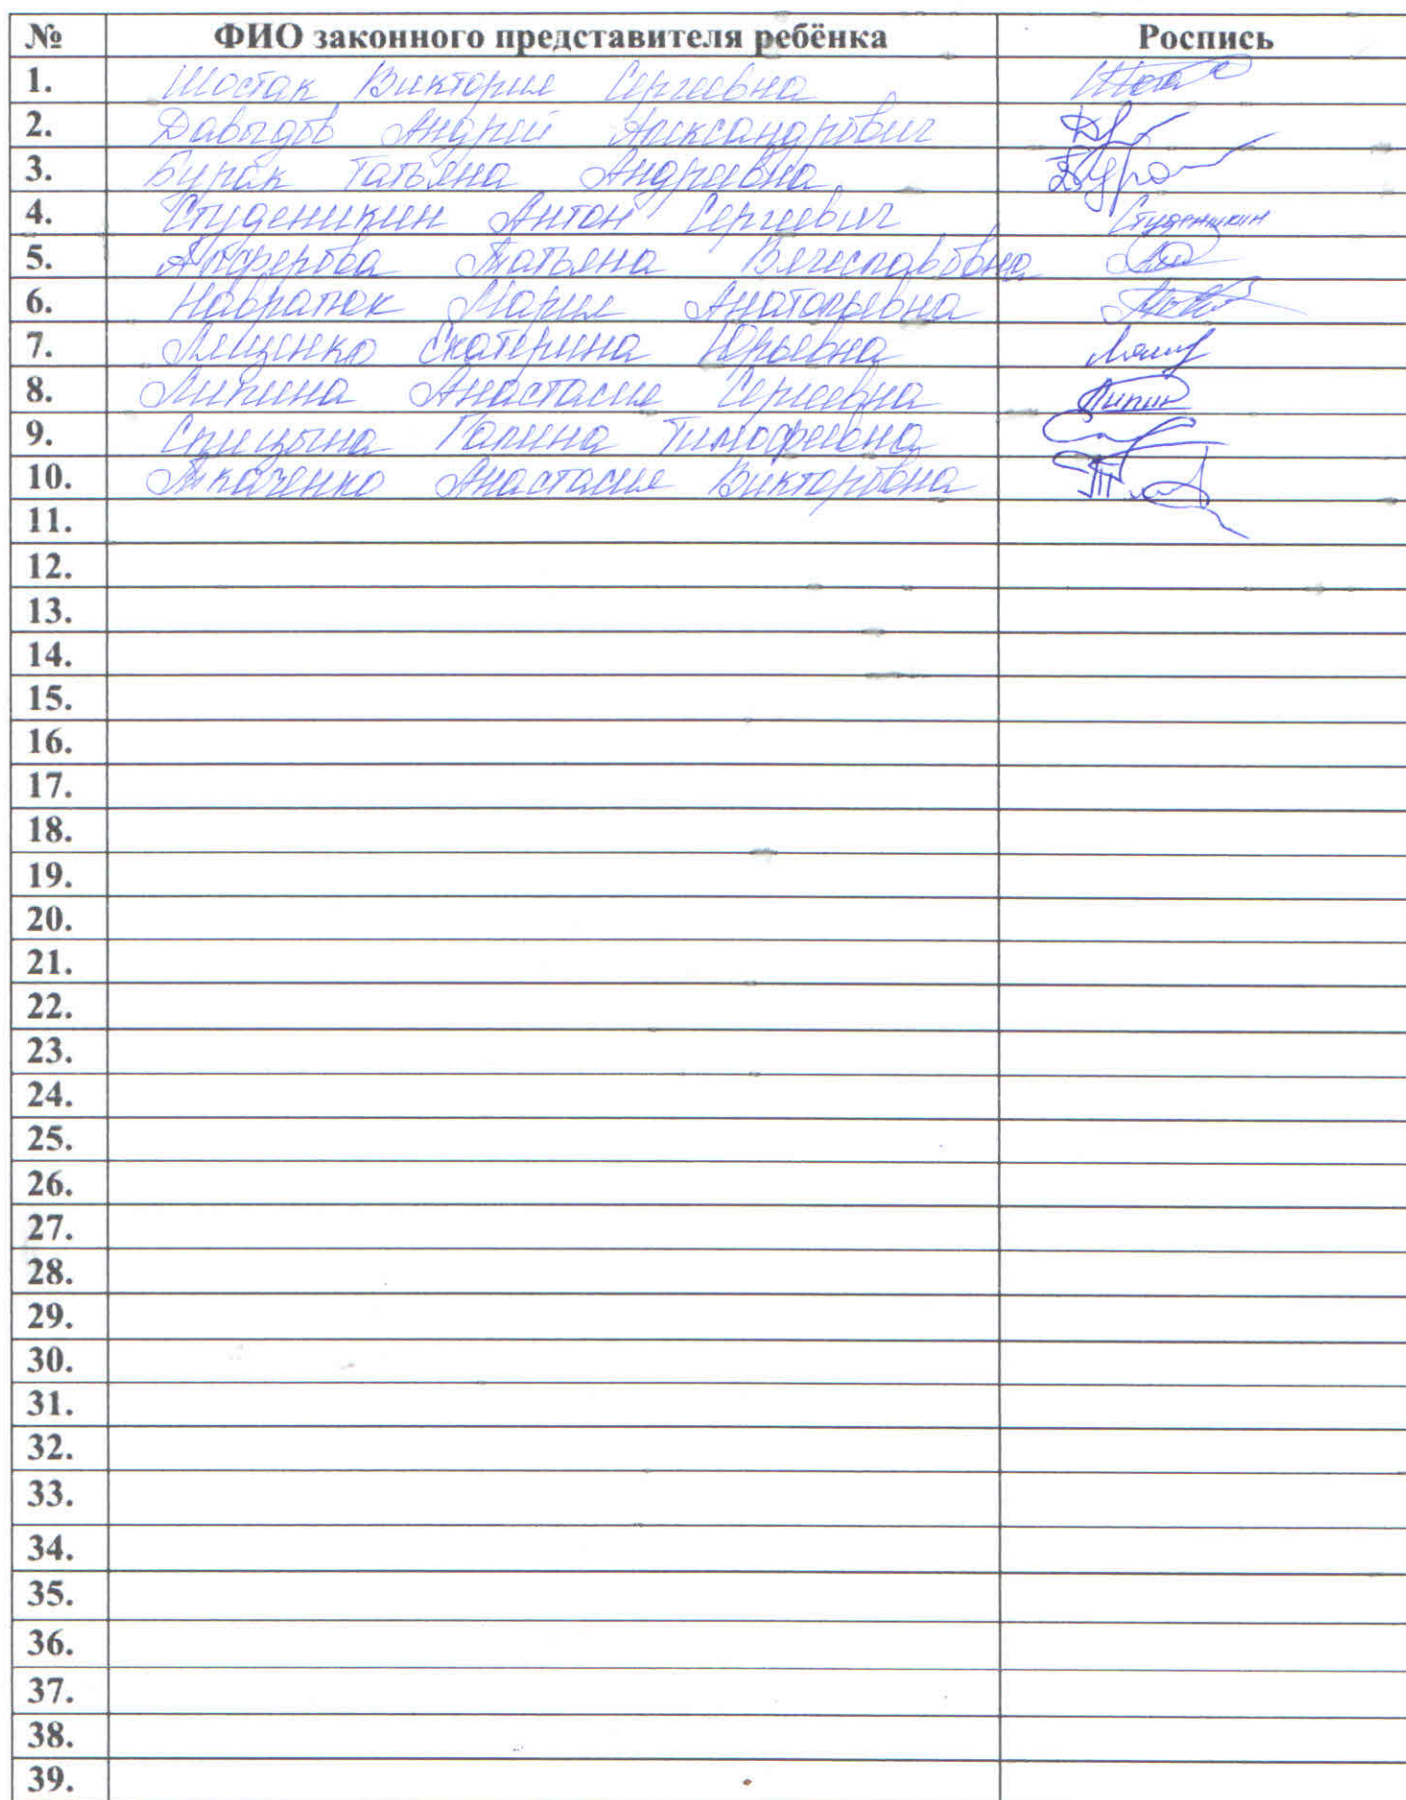 № ФИО законного представителя ребёнка Роспись
1. Шостак Виктория Сергеевна
2. Давыдов Андрей Александрович
3. Бурак Татьяна Андреевна
4. Студеникин Антон Сергеевич Студеникин
5. Татьяна Вячеславовна
6. Навратюк Мария Анатольевна
7. Лященко Екатерина Юрьевна
8. Липина Анастасия Сергеевна Липин
9. Спицына Галина Тимофеевна
10. Ткаченко Анастасия Викторовна
11.
12.
13.
14.
15.
16.
17.
18.
19.
20.
21.
22.
23.
24.
25.
26.
27.
28.
29.
30.
31.
32.
33.
34.
35.
36.
37.
38.
39.